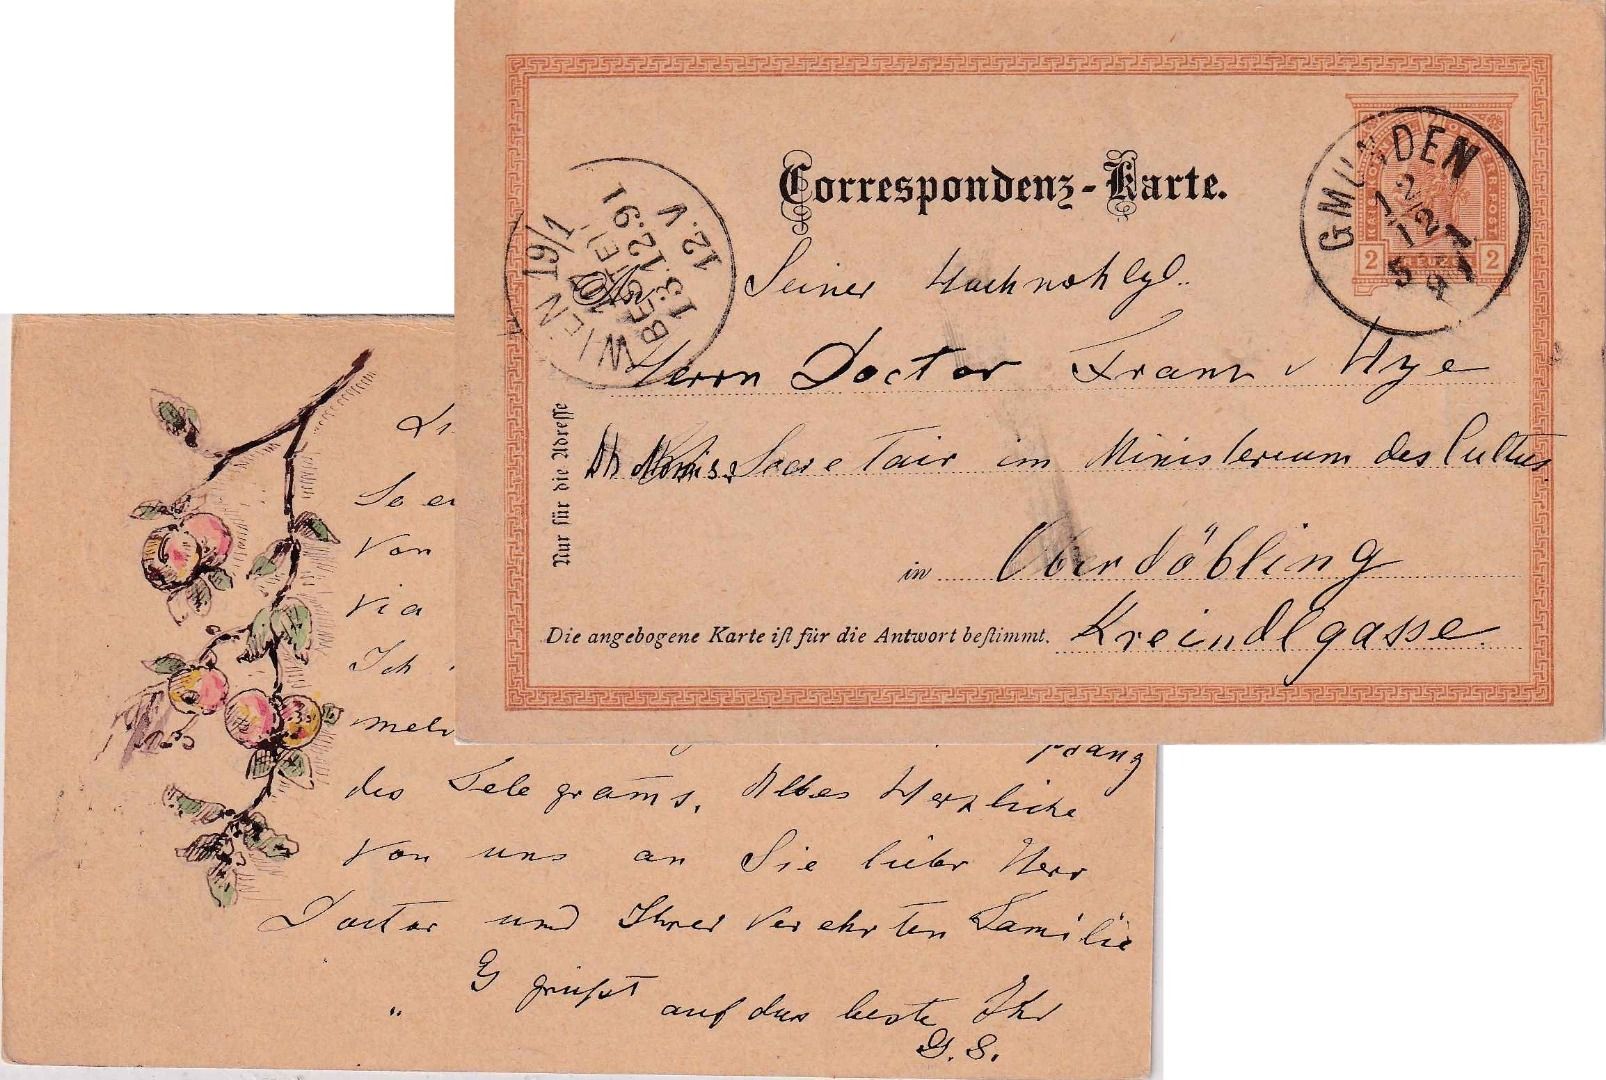 Correspondenz-Karte.
GMUNDEN
12/12
5 91
2 KREUZER 2
WIEN 19/1
BESTELLT
13.12.91
12.V
Seiner Hochwohlgl.
Herrn Doctor Franz v Hye
Secretair im Ministerium des Cultus
in Oberdöbling
Die angebogene Karte iſt für die Antwort beſtimmt. Kreindlgasse
Nur für die Adreſſe
Li
So e
Von
via
Ich
meh
pfang
des Telegrams. Alles Herzliche
von uns an Sie lieber Herr
Doctor und Ihrer verehrten Familie
Es grüßt auf das beste Ihr
G. S.